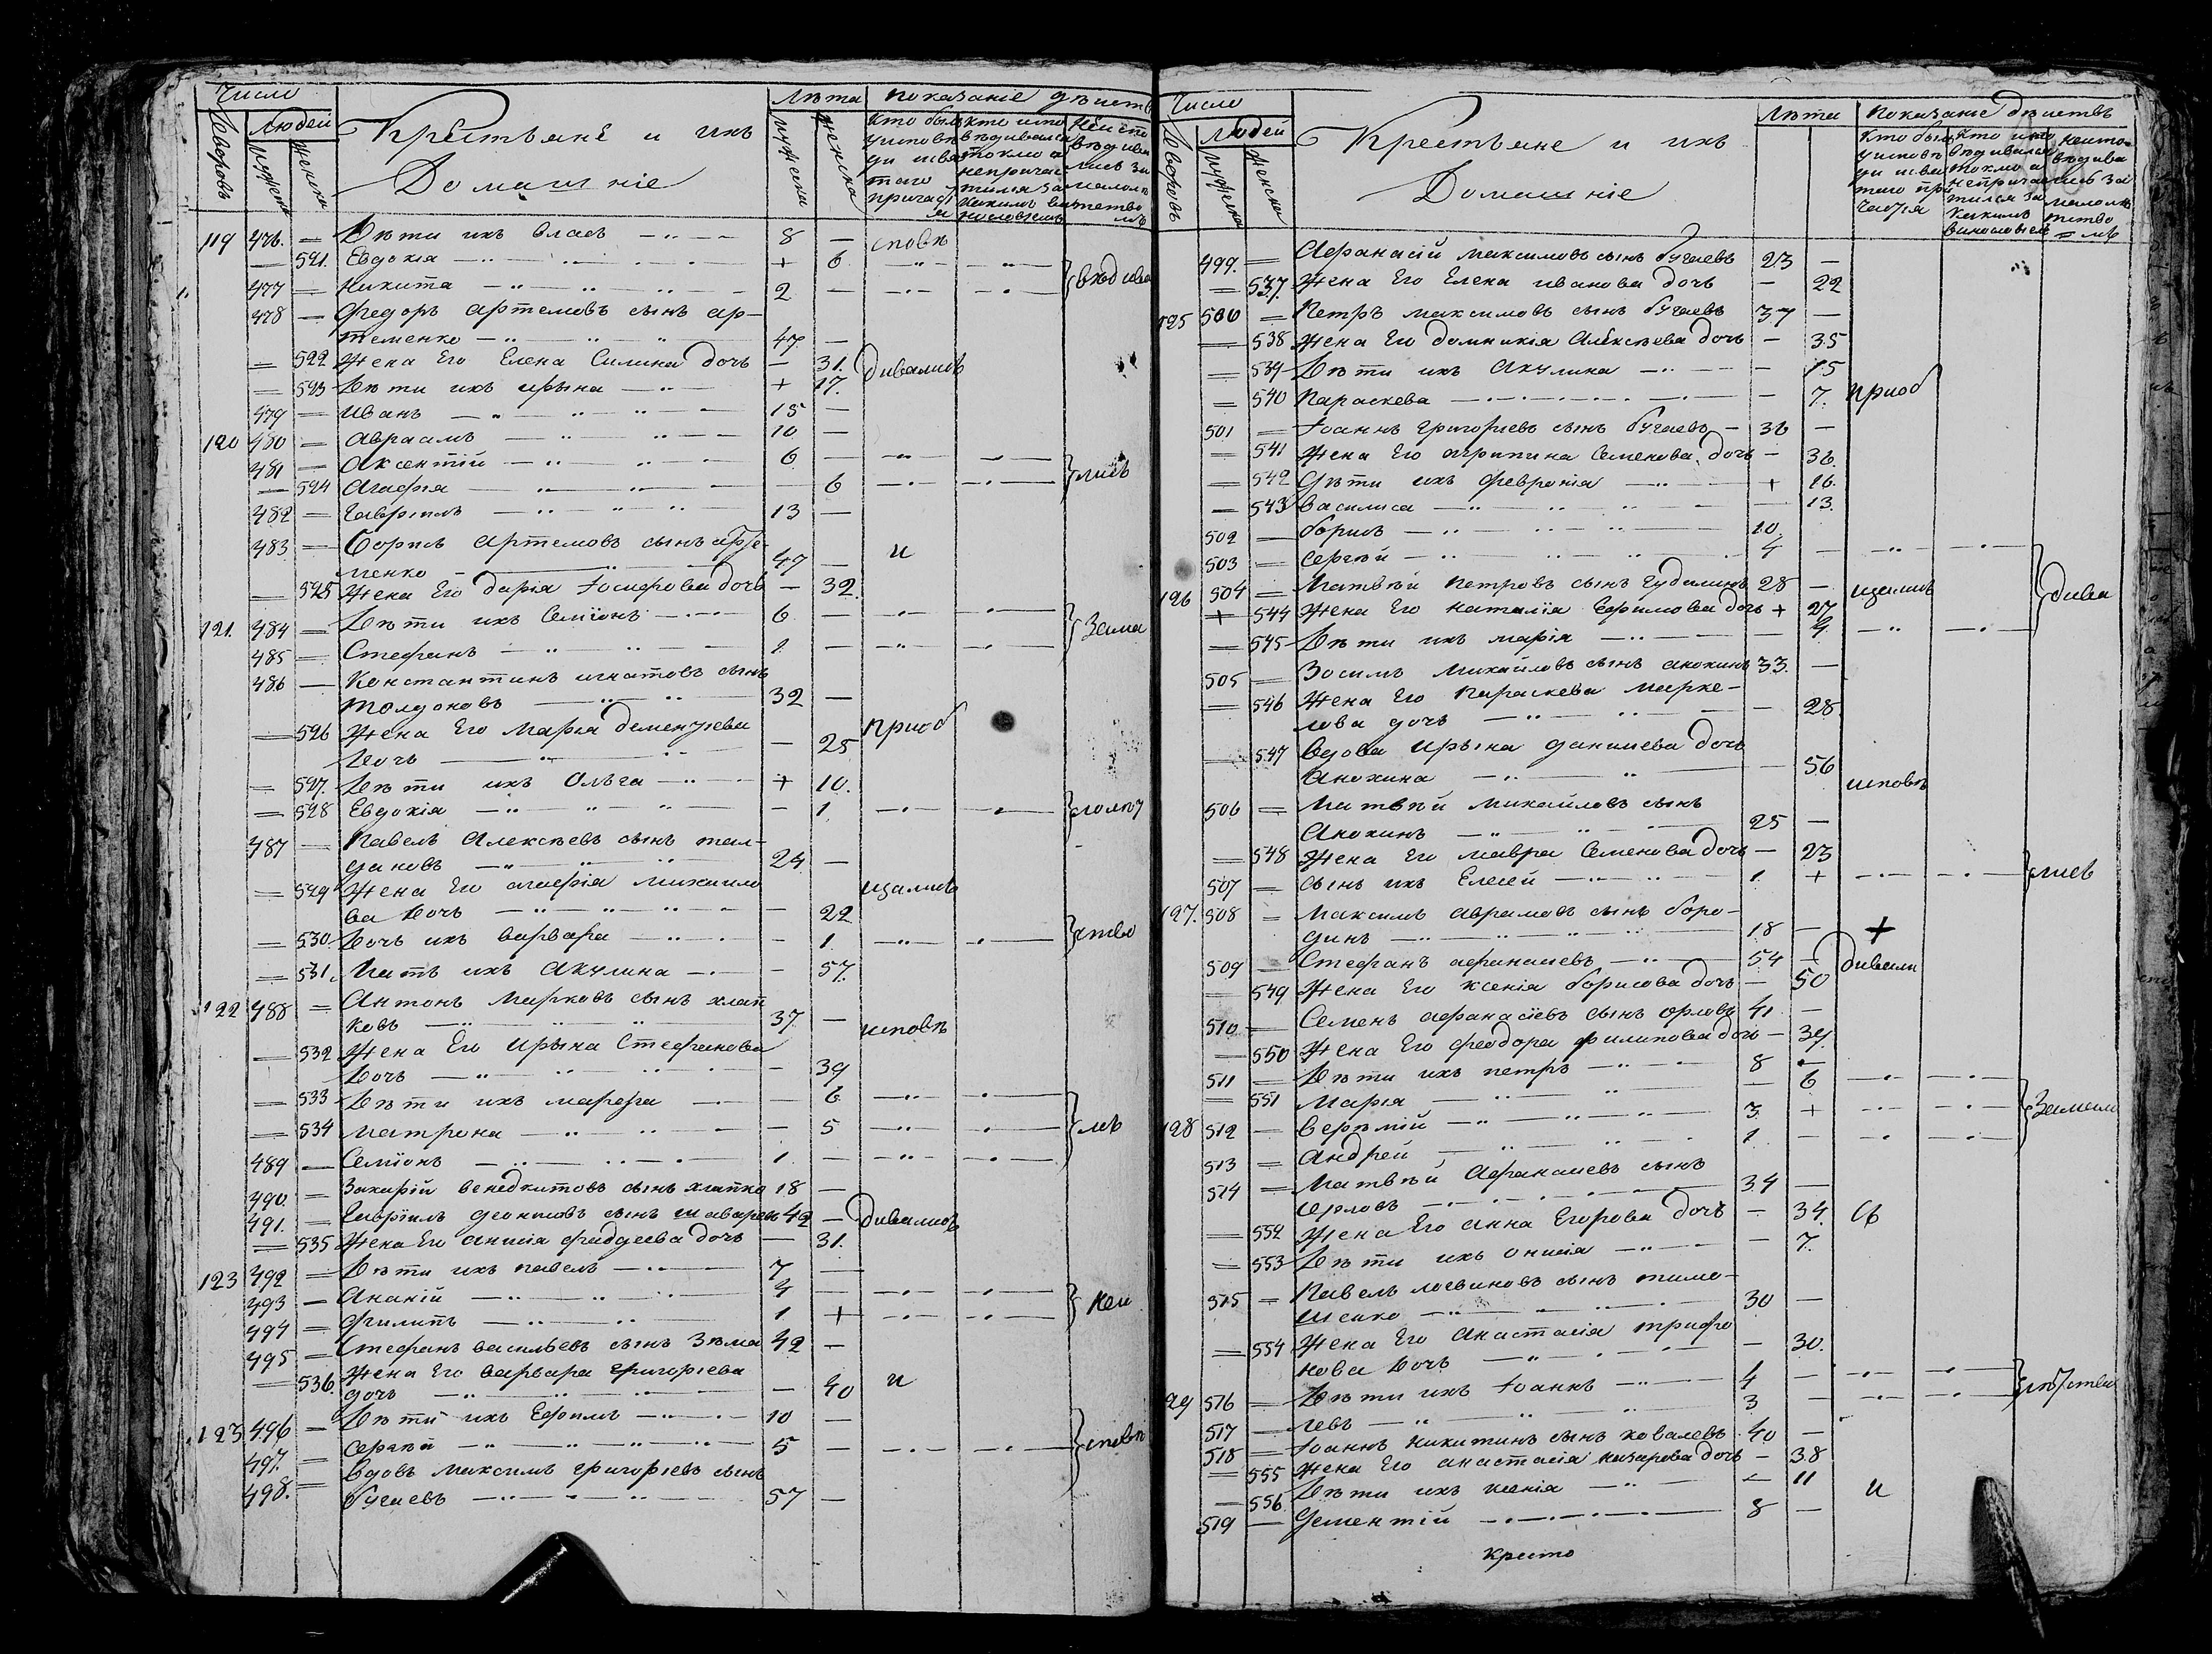 Число
Людей
Крестьяне и ихъ
Домашніе
Лѣта
показаніе дѣиств
Дворовъ
мужеска
женска
мужска
женска
119 476. — Дѣти ихъ власъ 8 — сповѣ
— 521. Евдокія + 6
477 — Никита 2 — вѣдива
478 — Федоръ артемовъ сынъ ар-
теменко 47 —
— 522 Жена Его Елена Силина дочь — 31. дивалисѣ
— 523 Дѣти ихъ ирына + 17.
479 — иванъ 15 —
120 480 — авраамъ 10 —
481 — Аксентій 6 —
— 524 Агафія — 6 лисѣ
482 — Гавріилъ 13 —
483 — Борисъ Артемовъ сынъ арте-
менко 47 — и
— 525 Жена Его дарія Іосифова дочь — 32.
121. 484 — Дѣти ихъ Семіонъ 6 —
485 — Стефанъ 1. — Зама
486 — Константинъ игнатовъ сынъ
толдоковъ 32 —
— 526 Жена Его Марія дементіева
дочь — 25 приоб
— 527. Дѣти ихъ Ольга + 10.
— 528 Евдокія — 1. лолѣ
487 — Павелъ Алексѣевъ сынъ тал-
дыковъ 24 —
— 529 Жена Его агафія михаило
ва дочь — 22 щалисѣ
— 530. Дочь ихъ варвара — 1. ство
— 531. Мать ихъ Акулина — 57.
122 488 — Антонъ Марковъ сынъ хлап
ковъ 37. — исповѣ
— 532 Жена Его Ирына Стефанова
дочь — 39
— 533 Дѣти ихъ марфа — 6
— 534 Матрона — 5 мѣ
489 — Семіонъ 1 —
490. — Захарій венедиктовъ сынъ хлапко 18 —
491. — Гавріилъ 42 — дивалисѣ
— 535 Жена Его анисія фаддеева дочь — 31.
123 492 — Дѣти ихъ павелъ 7 —
493 — Ананій 4 —
494 — Филипъ 1 + Неи
495 — Стефанъ васильевъ сынъ Зюма 42 —
— 536. Жена Его варвара григоріева
дочь — 40 и
123 496 — Дѣти ихъ Ефимъ 10 —
497. — Сергѣй 5 — споѣ
498. — Вдовъ Максимъ григоріевъ сынъ
бугаевъ 57 —
Число
Людей
Крестьяне и ихъ
Домашніе
Лѣта
Показаніе дѣиствъ
Дворовъ
мужеска
женска
499. — Афанасій максимовъ сынъ бугаевъ 23 —
— 537. Жена Его Елена иванова дочь — 22
125 500 — Петръ максимовъ сынъ бугаевъ 37 —
— 538 Жена Его домникія Алексѣева дочь — 35
— 539 Дѣти ихъ Акулина — 15
— 540 Параскева — 7. приоб
501 — Іоаннъ григоріевъ сынъ бугаевъ 36 —
— 541 Жена Его агрипина Семенова дочь — 36.
— 542 Дѣти ихъ Февронія + 16.
— 543 Василиса — 13.
502 — борисъ 10.
503 — Сергѣй 4 —
126 504 — Матвѣй петровъ сынъ 28 — щалисѣ
+ 544 Жена Его наталія Ефимова дочь + 27 дива
— 545 Дѣти ихъ марія — 4
505 — Зосимъ Михайловъ сынъ анохинъ 33. —
— 546 Жена Его параскева марке-
лова дочь — 28.
— 547 Вдова ирына данилева дочь
Анохина — 56
506 — Матвѣй михайловъ сынъ исповѣ
Анохинъ 25 —
— 548 Жена Его мавра Семенова дочь — 23
507 — сынъ ихъ Елесей 1. + лисѣ
127. 508 — Максимъ аврамовъ сынъ боро-
динъ 18 — +
509 — Стефанъ афанасіевъ 54 — дивали
— 549 Жена Его ксенія борисова дочь — 50
510 — Семенъ афанасіевъ сынъ орловъ 41 —
— 550 Жена Его феодора филипова дочь — 39.
511 — Дѣти ихъ петръ 8 —
— 551 Марія — 6
128 512 — Верѣмій 3. + Замал
513 — Андрей 1. —
514 — Матвѣй Афанасіевъ сынъ
орловъ 34 —
— 552 Жена Его анна Егорова дочь — 34.
— 553 Дѣти ихъ онисія — 7.
515 — Павелъ логвиновъ сынъ тимо-
шенко 30 —
— 554 Жена Его анастасія трифо
нова дочь — 30.
29 516 — Дѣти ихъ Іоаннъ 4 —
517 — левъ 3 —
518 — Іоаннъ Никитинъ сынъ ковалевъ 40 —
— 555 Жена Его анастасія назарова дочь — 38
— 556 Дѣти ихъ ксенія — 11 и
519 — Дементій 8 —
Кресто